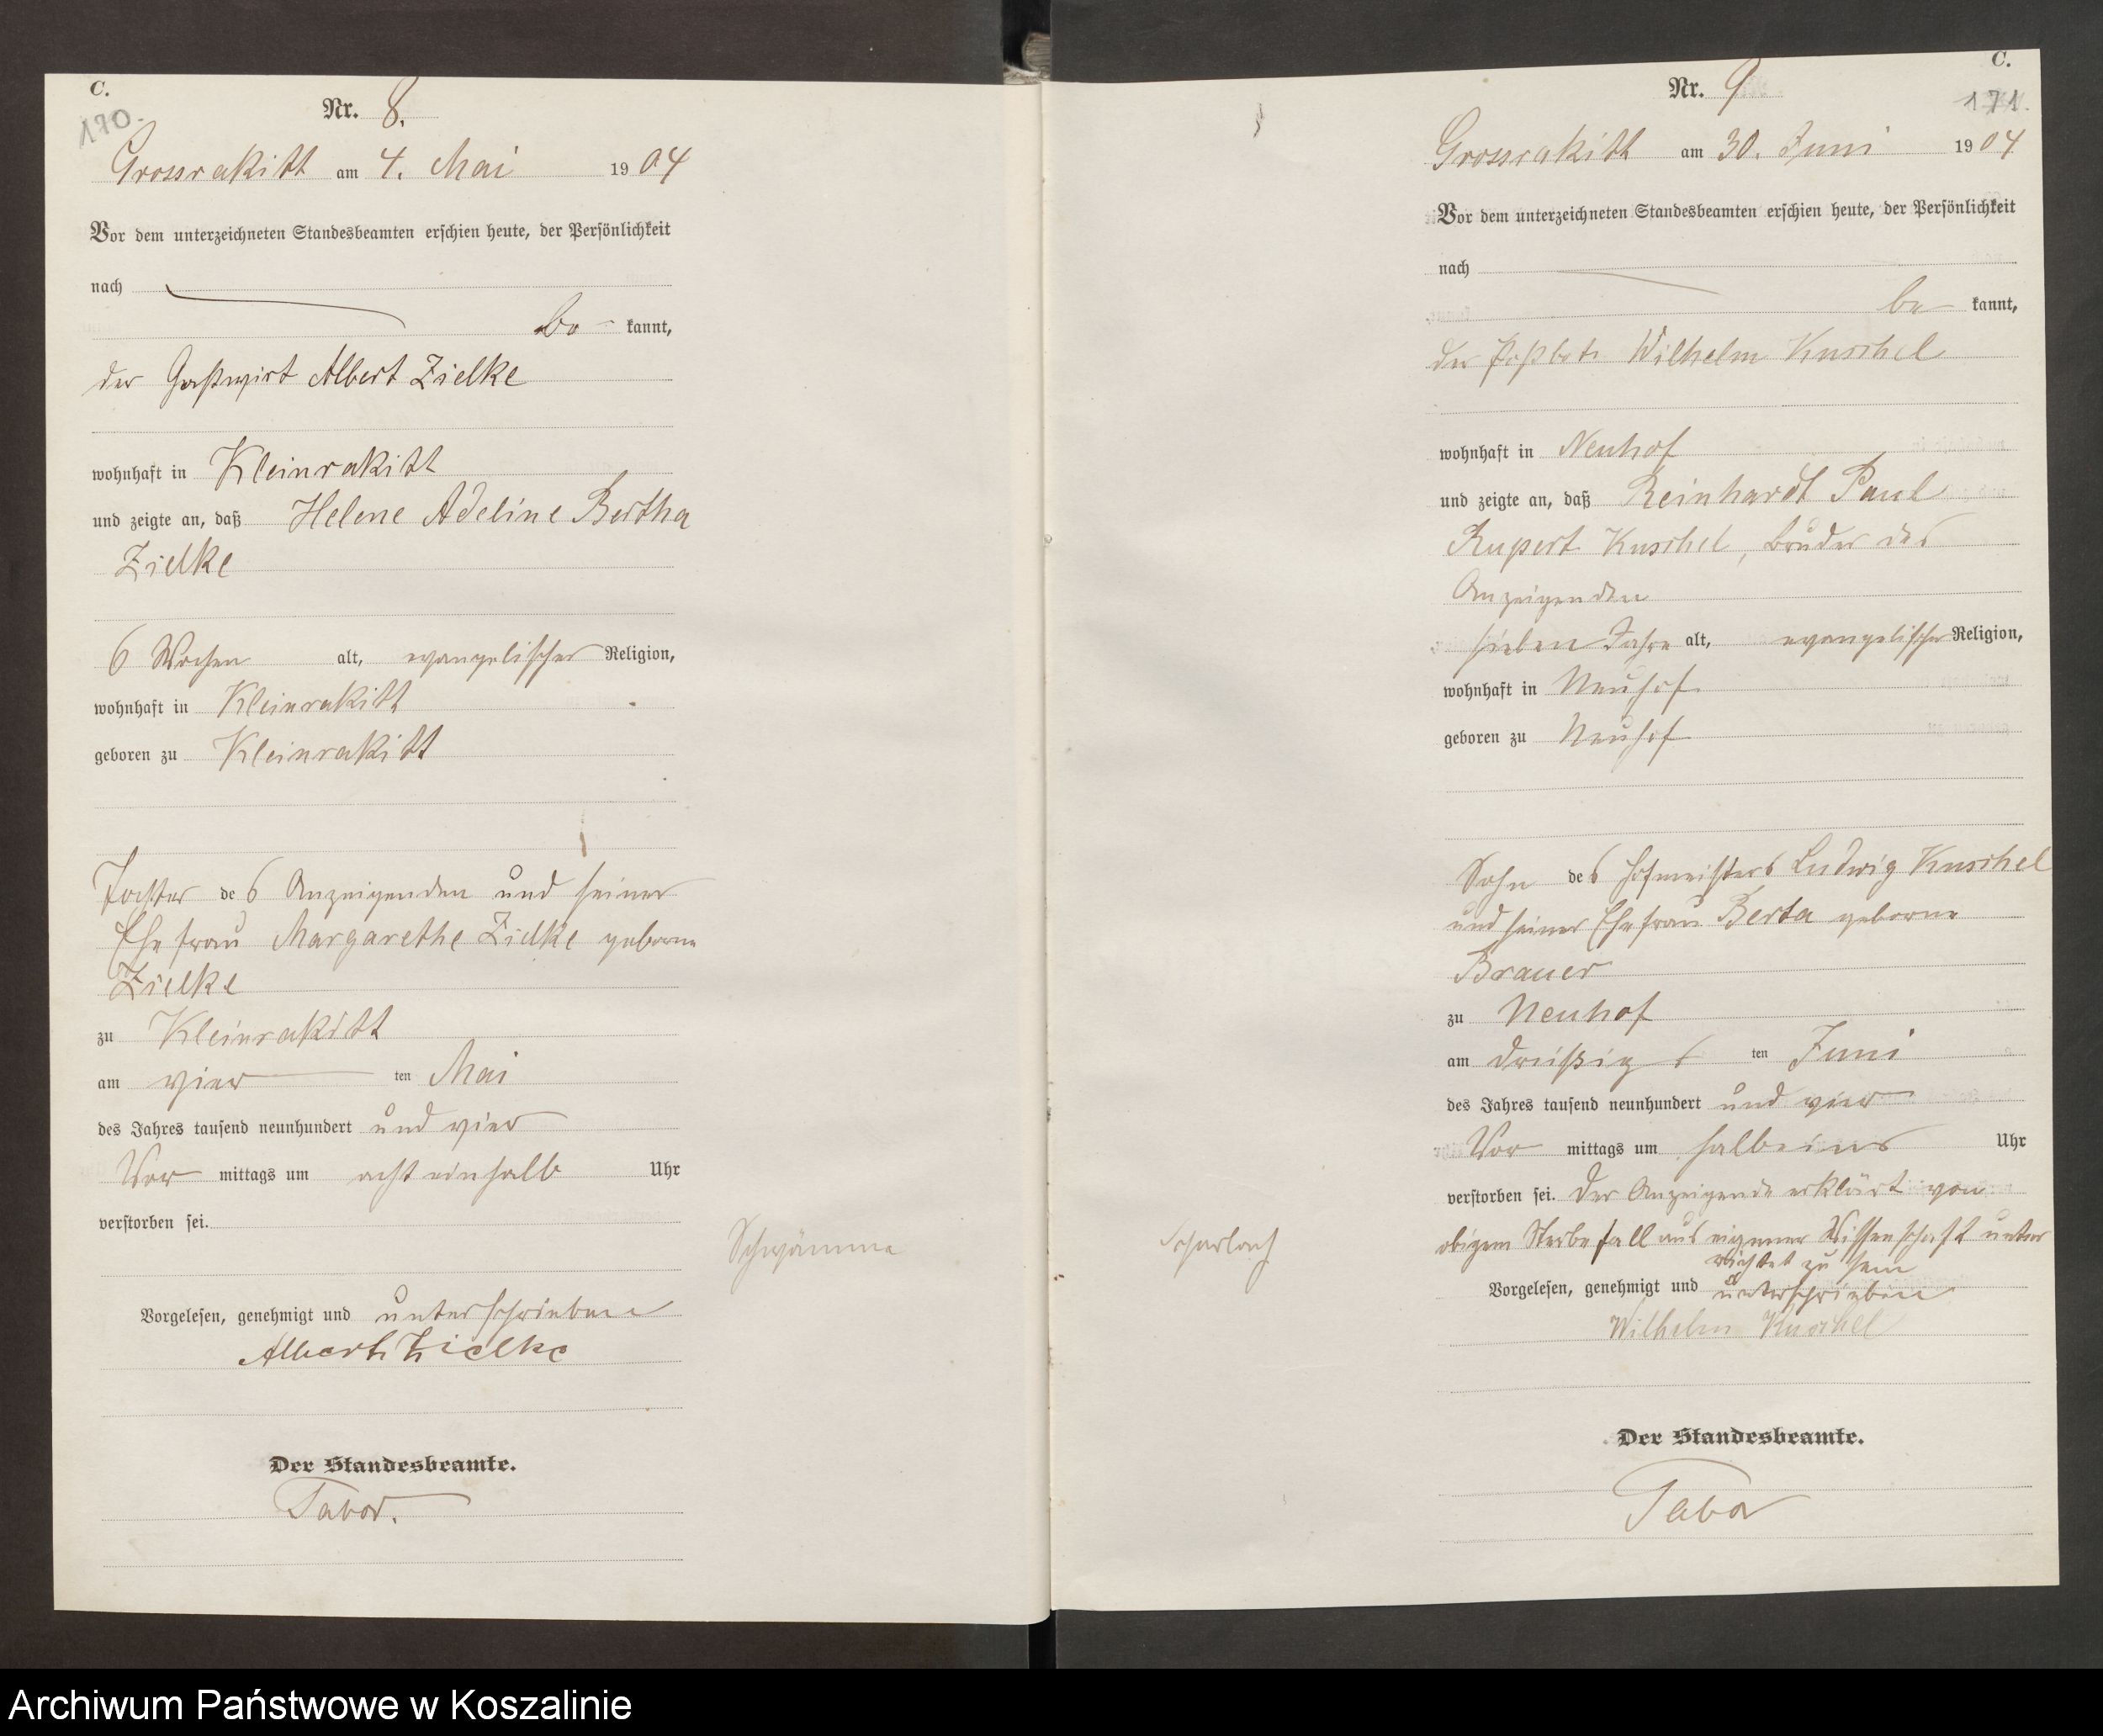 C.
170.
Nr. 8.
Grossrakitt am 4. Mai 1904
Vor dem unterzeichneten Standesbeamten erschien heute, der Persönlichkeit
nach
be- kannt,
der Gastwirt Albert Zielke
wohnhaft in Kleinrakitt
und zeigte an, daß Helene Adeline Bertha
Zielke
6 Wochen alt, evangelischer Religion,
wohnhaft in Kleinrakitt
geboren zu Kleinrakitt
Tochter des Anzeigenden und seiner
Ehefrau Margarethe Zielke geborne
Zielke
zu Kleinrakitt
am vier ten Mai
des Jahres tausend neunhundert und vier
Vor mittags um acht einhalb Uhr
verstorben sei.
Schwämme
Vorgelesen, genehmigt und unterschrieben
Albert Zielke
Der Standesbeamte.
Tabor.
C.
171.
Nr. 9
Grossrakitt am 30. Juni 1904
Vor dem unterzeichneten Standesbeamten erschien heute, der Persönlichkeit
nach
be- kannt,
der Postbote Wilhelm Kuschel
wohnhaft in Neuhof
und zeigte an, daß Reinhardt Paul
Rupert Kuschel, Bruder des
Anzeigenden
sieben Jahre alt, evangelischer Religion,
wohnhaft in Neuhof
geboren zu Neuhof
Sohn des Hofmeisters Ludwig Kuschel
und seiner Ehefrau Berta geborne
Brauer
zu Neuhof
am dreißigs ten Juni
des Jahres tausend neunhundert und vier
Vor mittags um halb eins Uhr
verstorben sei. Der Anzeigende erklärt von
obigem Sterbefall aus eigener Wissenschaft unter
richtet zu sein
Scharlach
Vorgelesen, genehmigt und unterschrieben
Wilhelm Kuschel
Der Standesbeamte.
Tabor
Archiwum Państwowe w Koszalinie